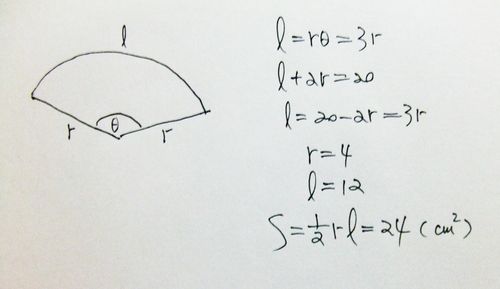 l
r θ r
l=rθ=3r
l+2r=20
l=20-2r=3r
r=4
l=12
S=½rl=24(cm²)